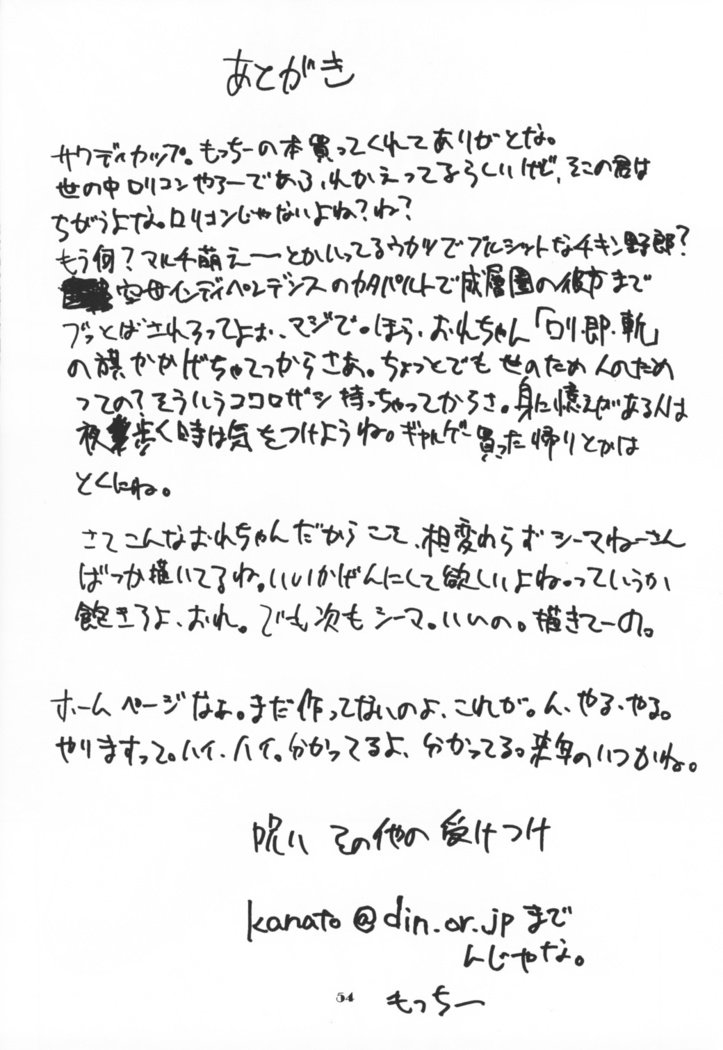 あとがき
サウディカップ。もっちーの本買ってくれてありがとな。
世の中ロリコンやろーであふれかえってるらしいけど、そこの君は
ちがうよな。ロリコンじゃないよね？ね？
もう何？マルチ萌えーーとかいってるウカツでブルシットなチキン野郎？
空母インディペンデンスのカタパルトで成層圏の彼方まで
ブッとばされろってよぉ、マジで。ほら、おれちゃん「ロリ・即・斬」
の旗かかげちゃてっからさあ。ちょっとでも世のため人のため
っての？そういうココロザシ持っちゃってからさ。身に憶えがある人は
夜歩く時は気をつけようね。ギャルゲー買った帰りとかは
とくにね。
さてこんなおれちゃんだからこそ、相変わらずシーマねーさん
ばっか描いてるね。いいかげんにして欲しいよね。っていうか
飽きろよ、おれ。でも次もシーマ。いいの。描きてーの。
ホームページなぁ。まだ作ってないのよ、これが。ん、やる、やる。
やりますって。ハイ、ハイ。分かってるよ、分かってる。来年のいつかね。
呪い その他の受けつけ
kanato@din.or.jpまで
んじゃな。
54 もっちー